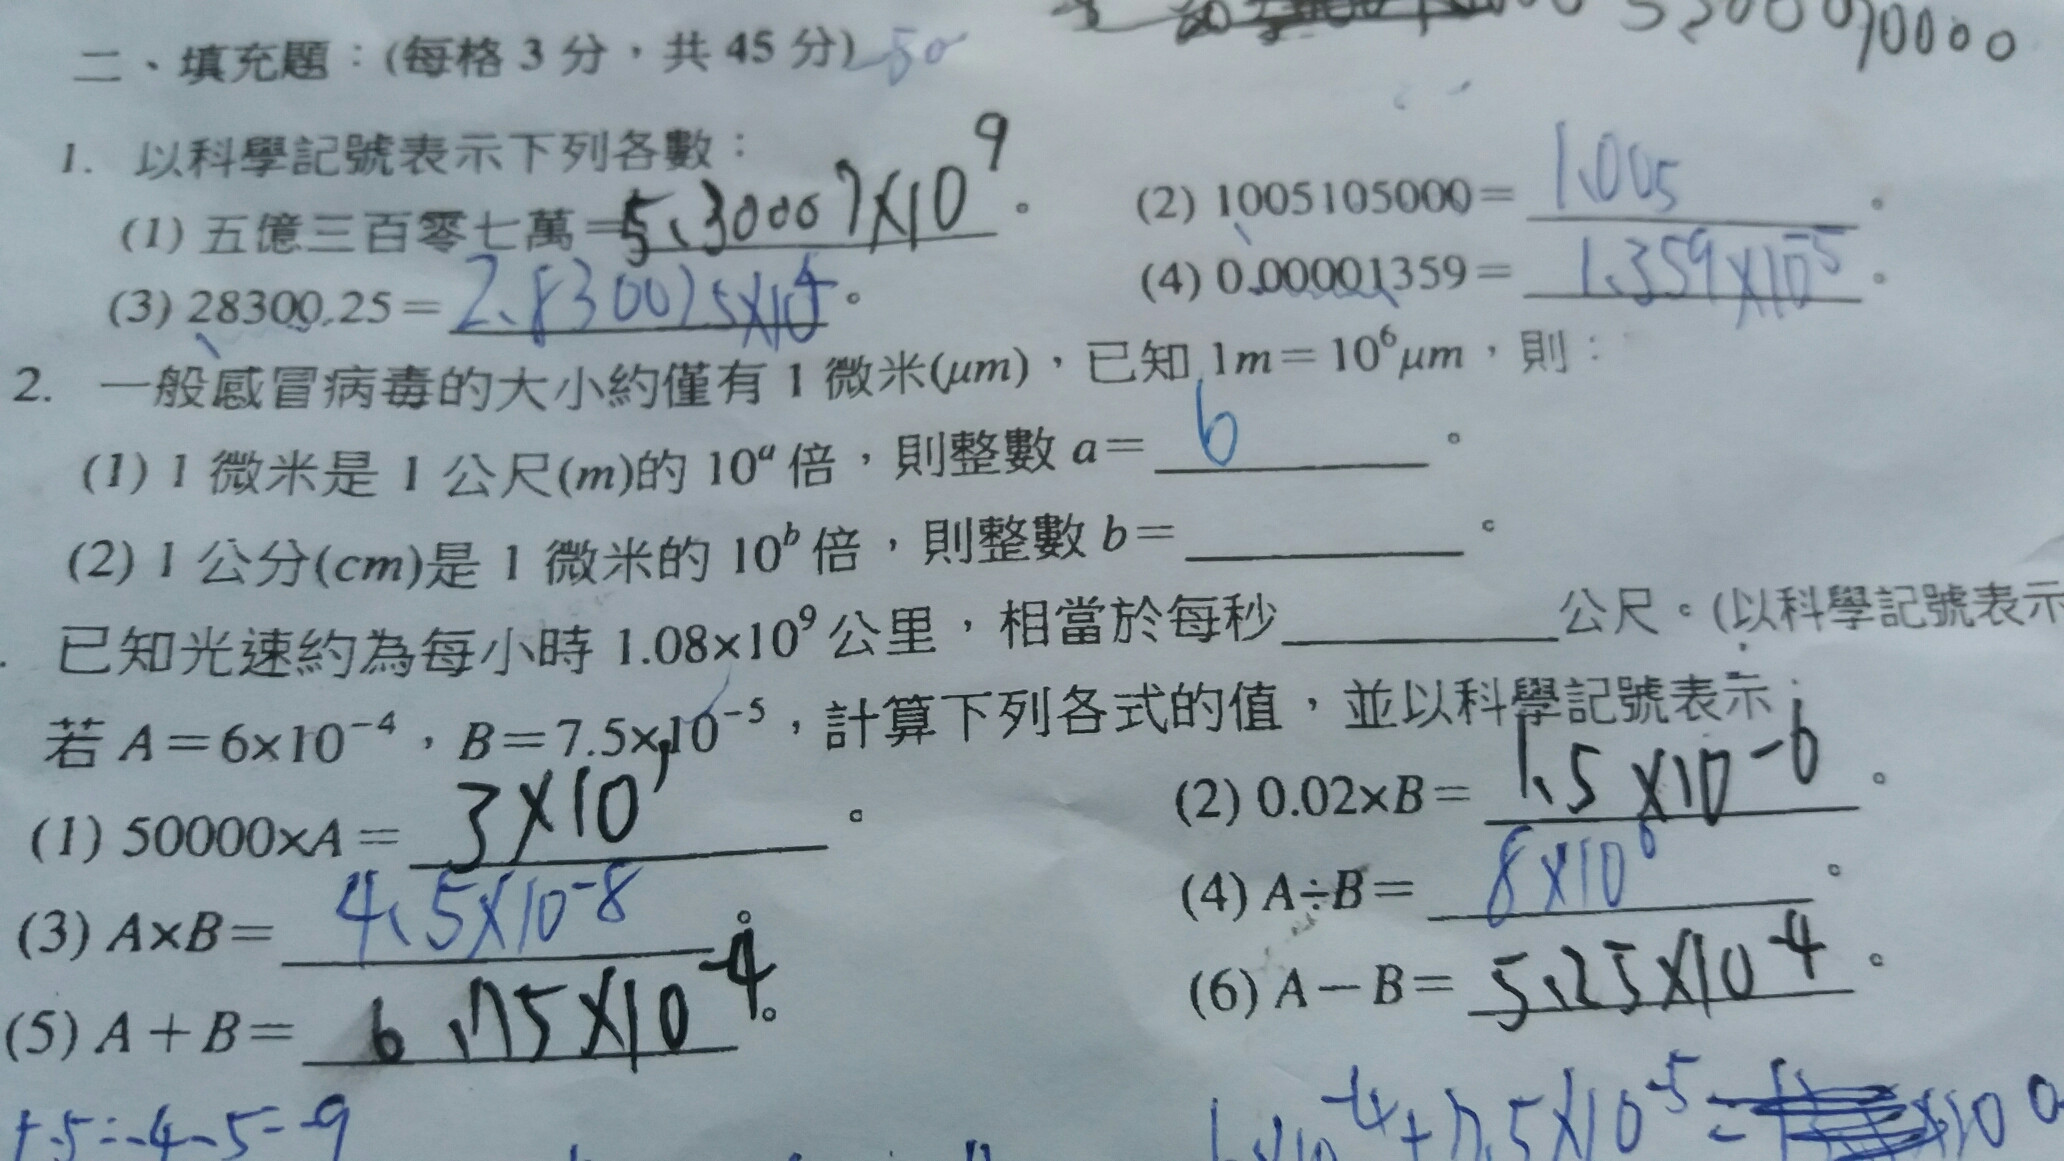 二、填充題：(每格 3 分，共 45 分)
70000
1. 以科學記號表示下列各數：
(1) 五億三百零七萬=5.30007×10⁹。 (2) 1005105000=1.005。
(3) 28300.25=2.830025×10⁴。 (4) 0.00001359=1.359×10⁻⁵。
2. 一般感冒病毒的大小約僅有 1 微米(μm)，已知 1m=10⁶μm，則：
(1) 1 微米是 1 公尺(m)的 10ᵃ 倍，則整數 a=6。
(2) 1 公分(cm)是 1 微米的 10ᵇ 倍，則整數 b=。
已知光速約為每小時 1.08×10⁹ 公里，相當於每秒公尺。(以科學記號表示
若 A=6×10⁻⁴，B=7.5×10⁻⁵，計算下列各式的值，並以科學記號表示：
(1) 50000×A=3×10¹。 (2) 0.02×B=1.5×10⁻⁶。
(3) A×B=4.5×10⁻⁸。 (4) A÷B=8×10⁰。
(5) A+B=6.75×10⁻⁴。 (6) A-B=5.25×10⁻⁴。
-4-5=-9
×10⁻⁴+7.5×10⁻⁵=